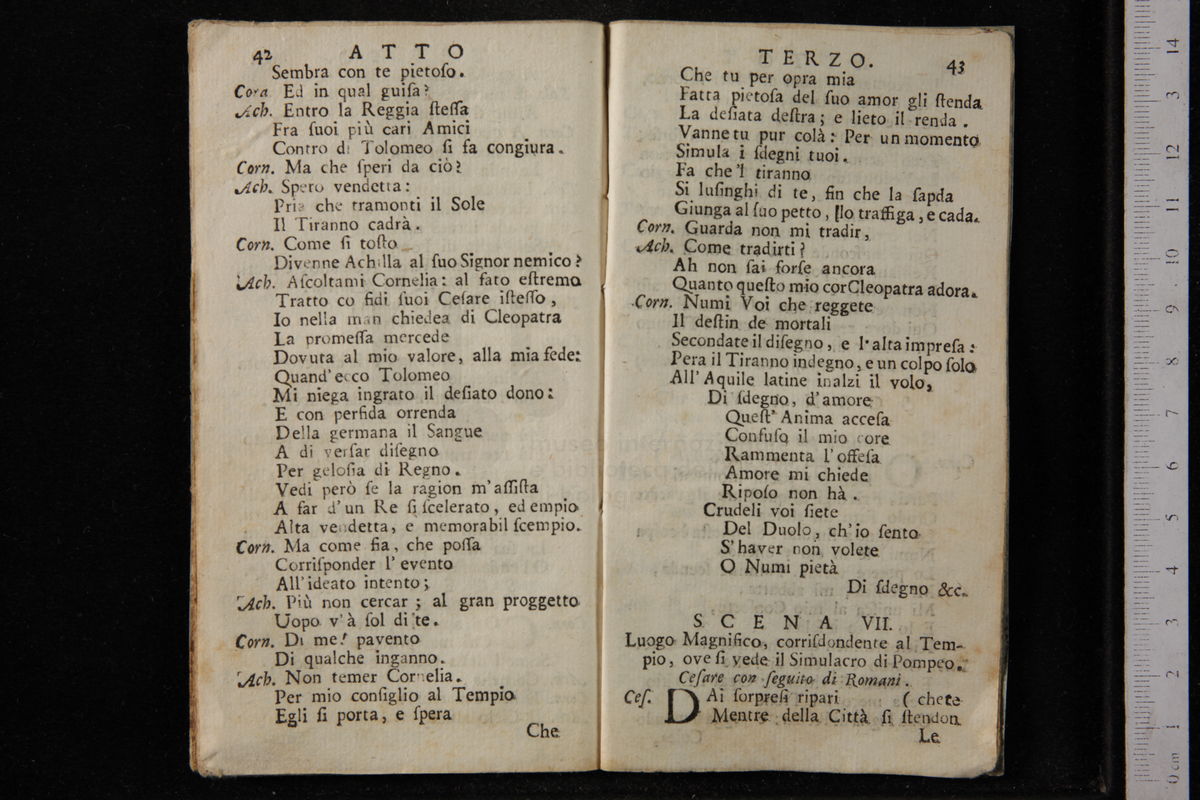 42 ATTO
Sembra con te pietoſo.
Corn Ed in qual guiſa?
Ach. Entro la Reggia ſteſſa
Fra ſuoi più cari Amici
Contro di Tolomeo ſi fa congiura.
Corn. Ma che ſperi da ciò?
Ach. Spero vendetta:
Pria che tramonti il Sole
Il Tiranno cadrà.
Corn. Come ſi toſto
Divenne Achilla al ſuo Signor nemico?
Ach. Aſcoltami Cornelia: al fato eſtremo
Tratto co fidi ſuoi Ceſare iſteſſo,
Io nella man chiedea di Cleopatra
La promeſſa mercede
Dovuta al mio valore, alla mia fede:
Quand'ecco Tolomeo
Mi niega ingrato il deſiato dono:
E con perfida orrenda
Della germana il Sangue
A di verſar diſegno
Per geloſia di Regno.
Vedi però ſe la ragion m'aſſiſta
A far d'un Re ſi ſcelerato, ed empio
Alta vendetta, e memorabil ſcempio.
Corn. Ma come fia, che poſſa
Corriſponder l'evento
All'ideato intento;
Ach. Più non cercar; al gran proggetto
Uopo v'à ſol di te.
Corn. Di me! pavento
Di qualche inganno.
Ach. Non temer Cornelia.
Per mio conſiglio al Tempio
Egli ſi porta, e ſpera
Che
TERZO. 43
Che tu per opra mia
Fatta pietoſa del ſuo amor gli ſtenda
La deſiata deſtra; e lieto il renda.
Vanne tu pur colà: Per un momento
Simula i ſdegni tuoi.
Fa che'l tiranno
Si luſinghi di te, fin che la ſapda
Giunga al ſuo petto, ſlo traffiga, e cada.
Corn. Guarda non mi tradir,
Ach. Come tradirti?
Ah non ſai forſe ancora
Quanto queſto mio cor Cleopatra adora.
Corn. Numi Voi che reggete
Il deſtin de mortali
Secondate il diſegno, e l'alta impreſa:
Pera il Tiranno indegno, e un colpo ſolo
All'Aquile latine inalzi il volo,
Di ſdegno, d'amore
Queſt'Anima acceſa
Confuſo il mio core
Rammenta l'offeſa
Amore mi chiede
Ripoſo non hà.
Crudeli voi ſiete
Del Duolo, ch'io ſento
S'haver non volete
O Numi pietà
Di ſdegno &c.
SCENA VII.
Luogo Magnifico, corriſdondente al Tem-
pio, ove ſi vede il Simulacro di Pompeo.
Ceſare con ſeguito di Romani.
Ceſ. DAi ſorpreſi ripari (chete
Mentre della Città ſi ſtendon
Le
14
13
12
11
10
9
8
7
6
5
4
3
2
1
0 cm